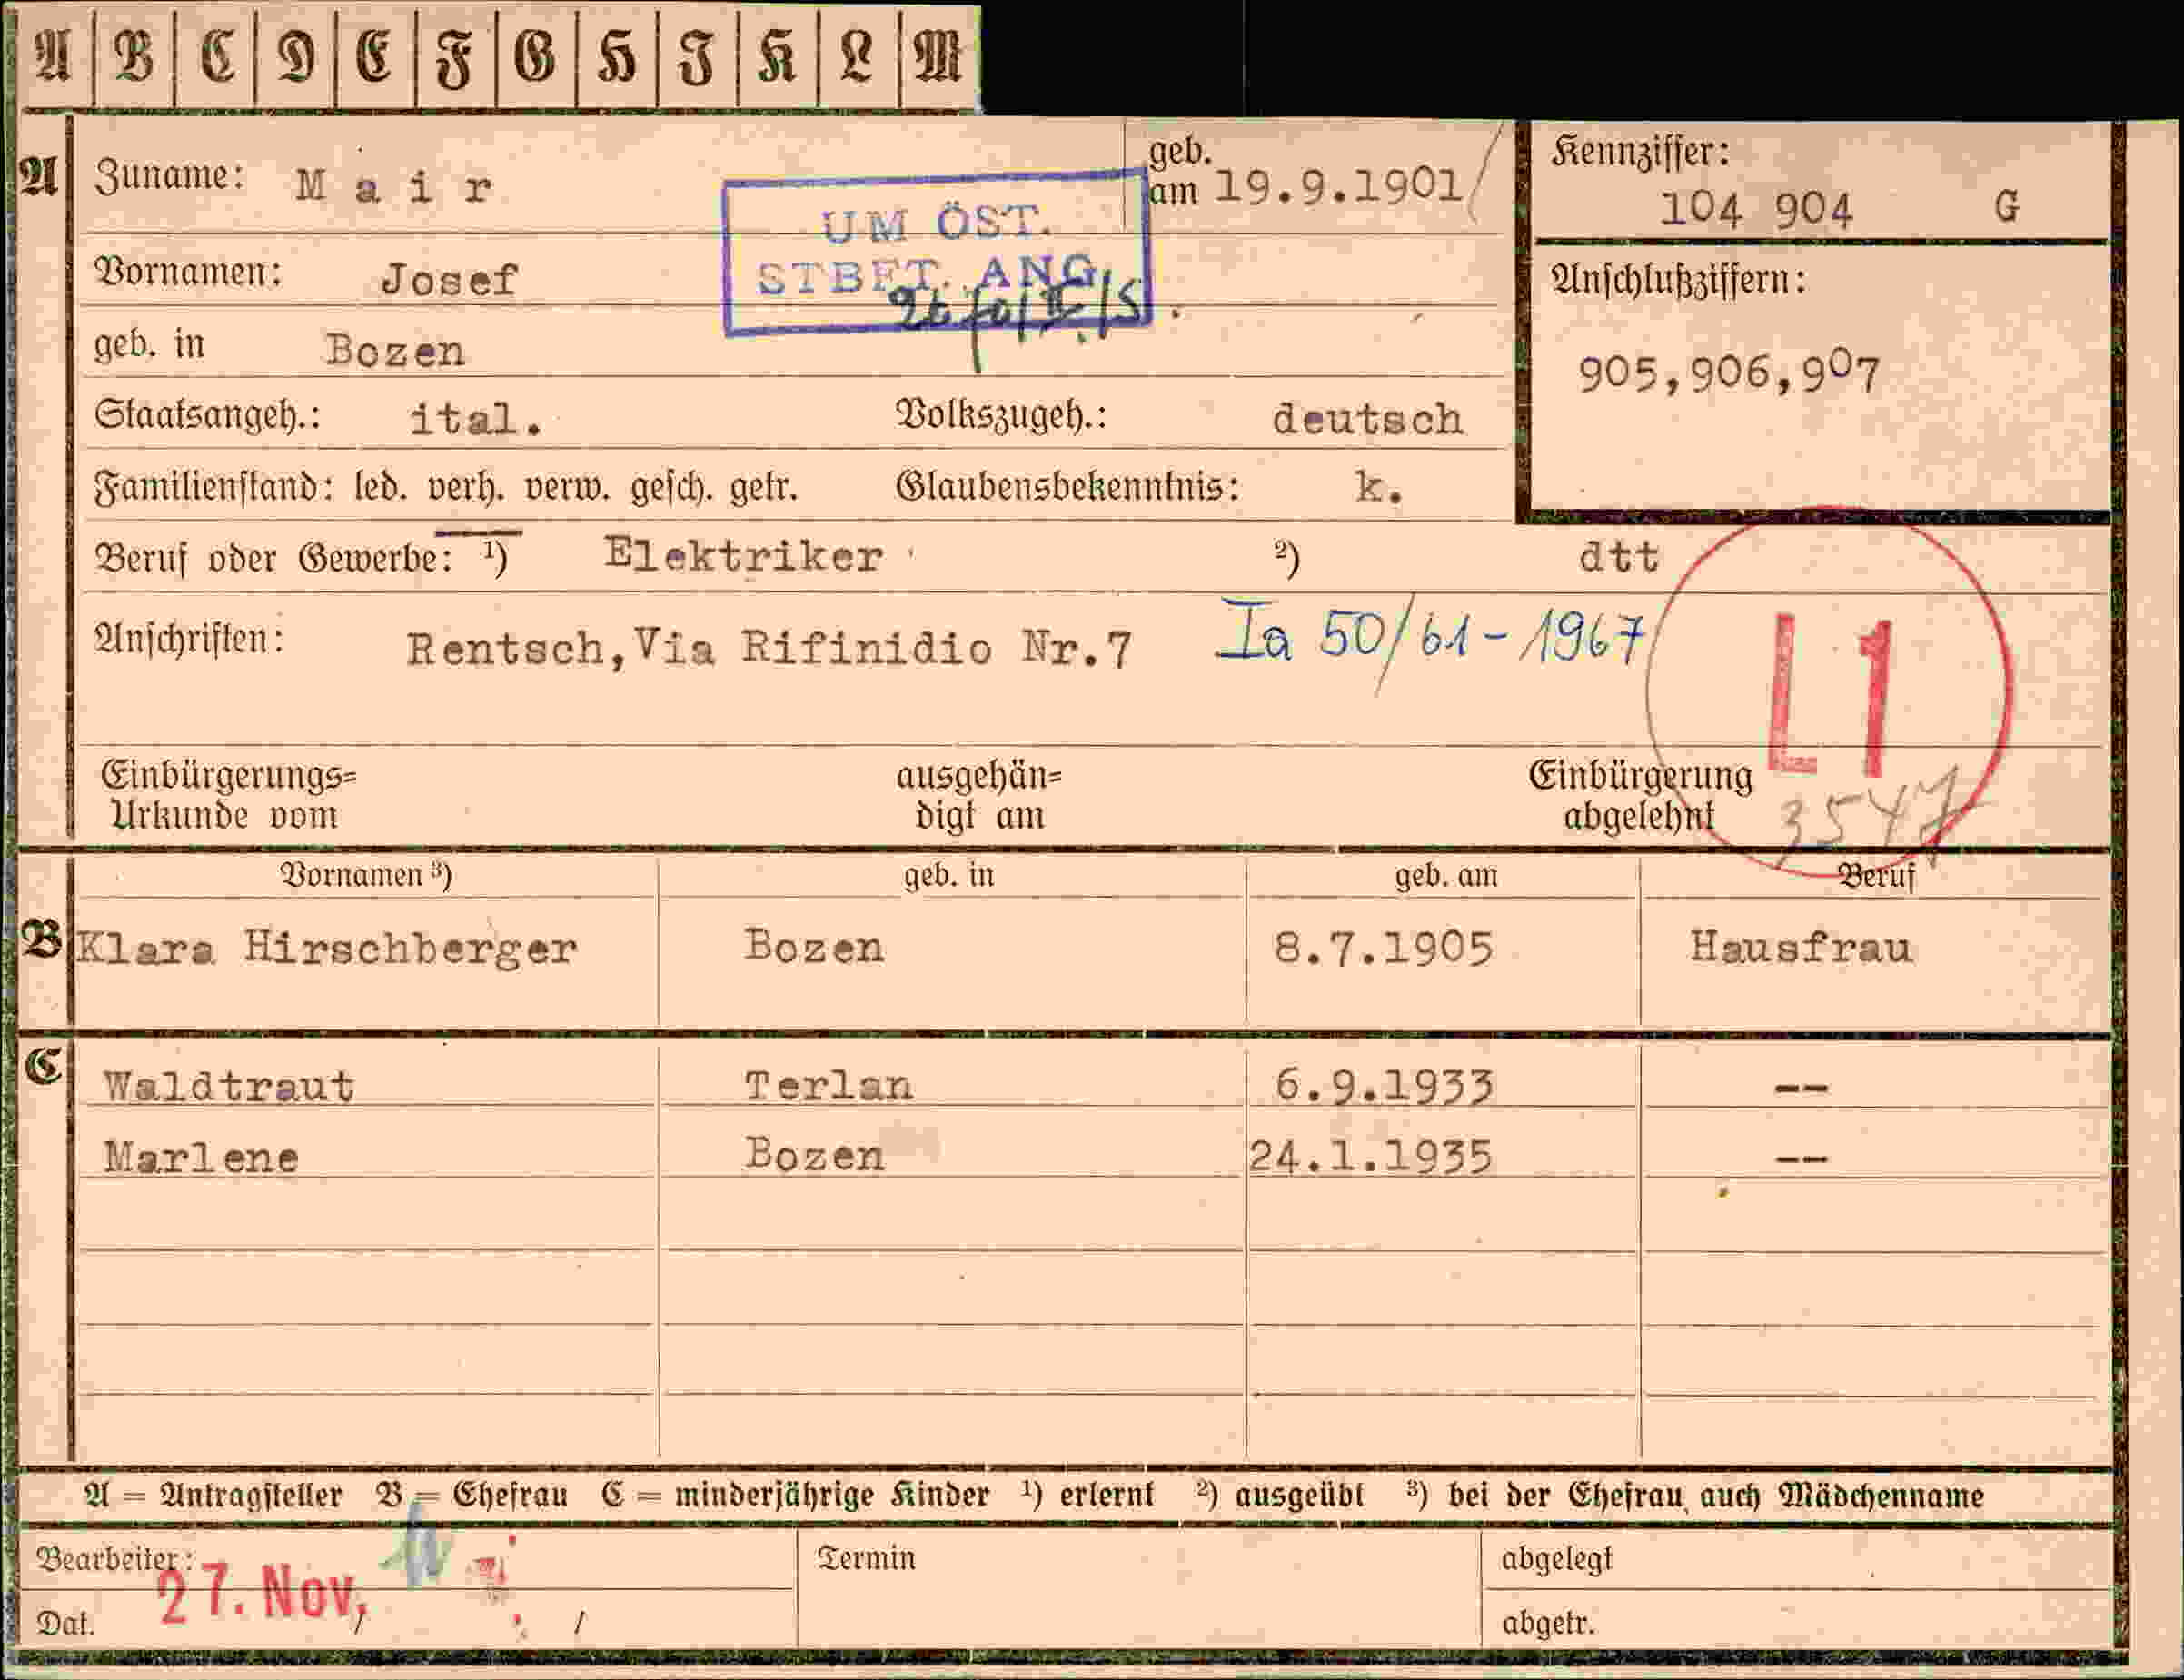 A B C D E F G H I K L M
A Zuname: Mair geb. am 19.9.1901 Kennziffer: 104 904 G
UM ÖST. STBET. ANG.
Vornamen: Josef
Anschlußziffern: 905,906,907
geb. in Bozen
Staatsangeh.: ital. Volkszugeh.: deutsch
Familienstand: led. verh. verw. gesch. getr. Glaubensbekenntnis: k.
Beruf oder Gewerbe: ¹) Elektriker ²) dtt
Anschriften: Rentsch,Via Rifinidio Nr.7 Ia 50/61-1967
L1
Einbürgerungs= Urkunde vom ausgehän= digt am Einbürgerung abgelehnt 3547
Vornamen ³) geb. in geb. am Beruf
B Klara Hirschberger Bozen 8.7.1905 Hausfrau
C Waldtraut Terlan 6.9.1933 --
Marlene Bozen 24.1.1935 --
A = Antragsteller B = Ehefrau C = minderjährige Kinder ¹) erlernt ²) ausgeübt ³) bei der Ehefrau auch Mädchenname
Bearbeiter: Termin abgelegt
27. Nov.
Dat. / / abgetr.